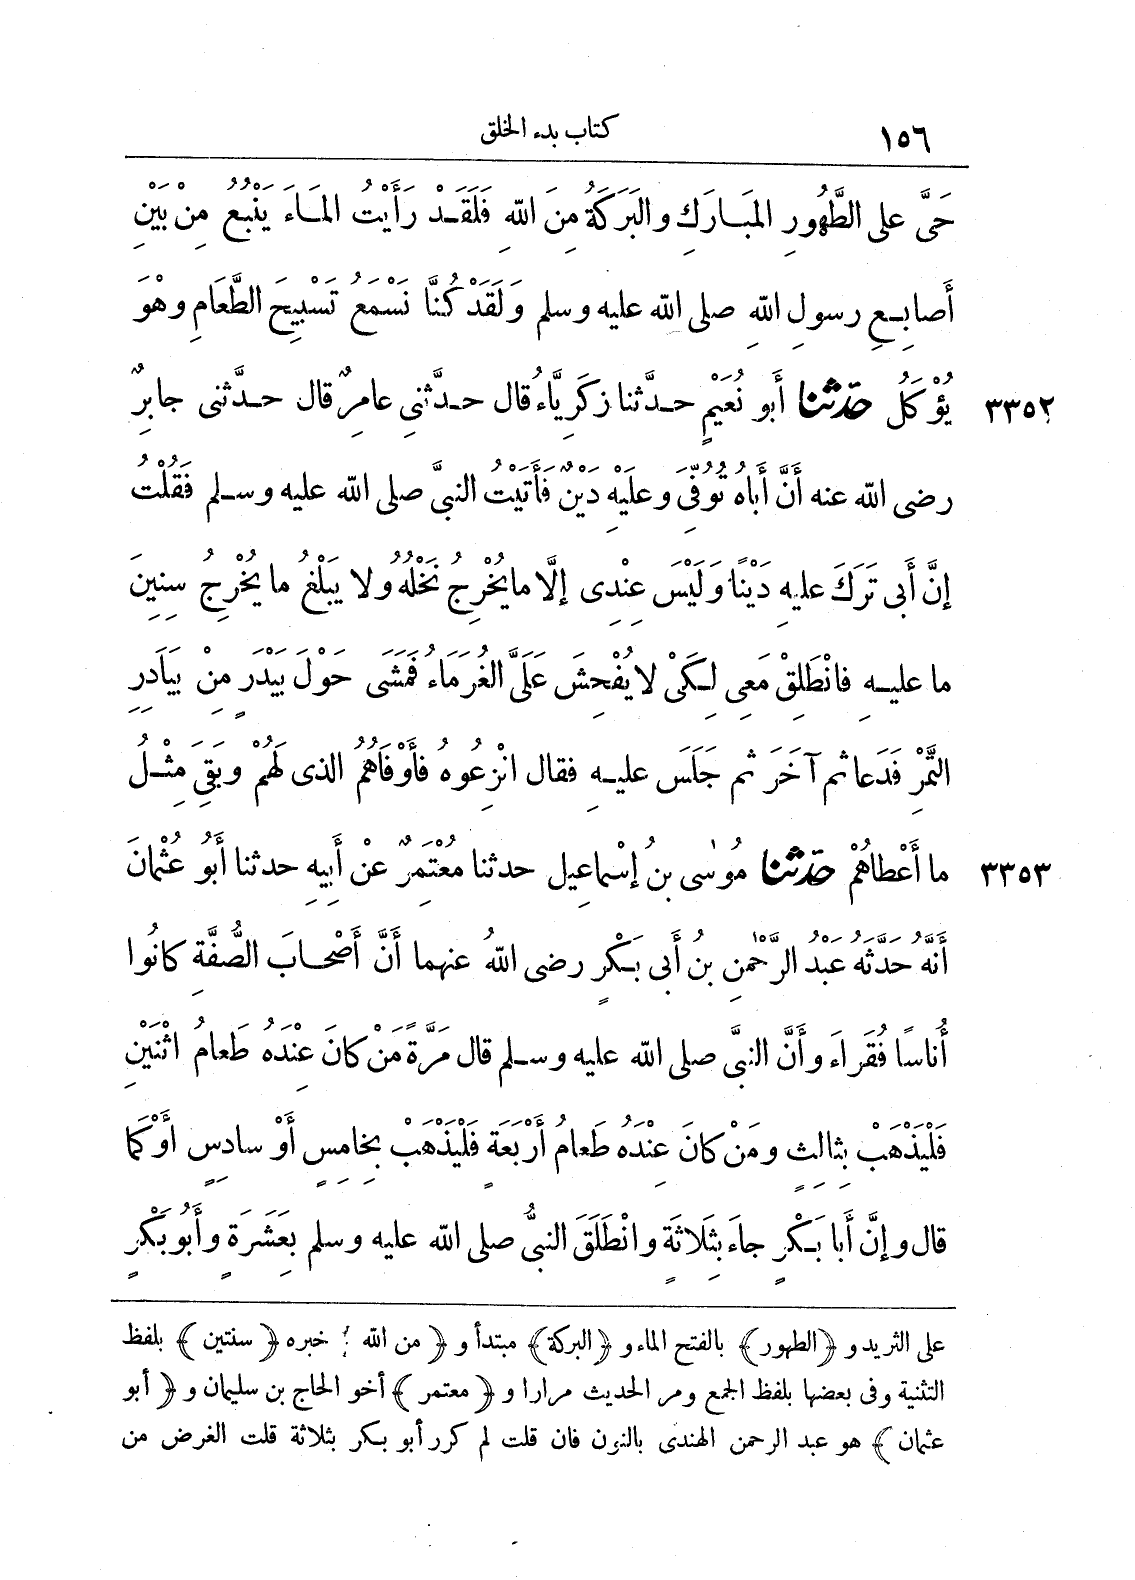 ١٥٦
كتاب بدء الخلق
حَىَّ على الطَّهُورِ المُبَارَكِ والبَرَكَةُ مِنَ اللهِ فَلَقَدْ رَأَيْتُ المَاءَ يَنْبُعُ مِنْ بَيْنِ
أَصَابِعِ رسولِ اللهِ صلى الله عليه وسلم وَلَقَدْ كُنَّا نَسْمَعُ تَسْبِيحَ الطَّعَامِ وهْوَ
٣٣٥٢ يُؤْكَلُ حَدَّثَنَا أَبو نُعَيْمٍ حدَّثنا زكَرِيَّاءُ قال حدَّثنى عامِرٌ قال حدَّثنى جابِرٌ
رضى الله عنه أَنَّ أَبَاهُ تُوُفِّىَ وعَلَيْهِ دَيْنٌ فَأَتَيْتُ النبىَّ صلى الله عليه وسلم فَقُلْتُ
إنَّ أَبى تَرَكَ عليهِ دَيْنًا وَلَيْسَ عِنْدِى إلَّا ما يُخْرِجُ نَخْلُهُ ولا يَبْلُغُ ما يُخْرِجُ سِنِينَ
ما عليهِ فانْطَلِقْ مَعِى لِكَىْ لا يُفْحِشَ عَلَىَّ الغُرَمَاءُ فَمَشَى حَوْلَ بَيْدَرٍ مِنْ بَيَادِرِ
التَّمْرِ فَدَعا ثم آخَرَ ثم جَلَسَ عليهِ فقال انْزِعُوهُ فأَوْفَاهُمُ الذى لَهُمْ وبَقِىَ مِثْلُ
٣٣٥٣ ما أَعْطاهُمْ حَدَّثَنَا مُوسَى بنُ إسْماعِيلَ حدثنا مُعْتَمِرٌ عنْ أَبِيهِ حدثنا أَبُو عُثْمانَ
أَنَّهُ حَدَّثَهُ عَبْدُ الرَّحْمٰنِ بنُ أَبى بَكْرٍ رضى اللهُ عنهما أَنَّ أَصْحابَ الصُّفَّةِ كانُوا
أُناسًا فُقَراءَ وأَنَّ النبىَّ صلى الله عليه وسلم قال مَرَّةً مَنْ كانَ عِنْدَهُ طَعامُ اثْنَيْنِ
فَلْيَذْهَبْ بِثالِثٍ ومَنْ كانَ عِنْدَهُ طَعامُ أَرْبَعَةٍ فَلْيَذْهَبْ بِخامِسٍ أَوْ سادِسٍ أَوْ كما
قال وإنَّ أَبا بَكْرٍ جاءَ بِثَلاثَةٍ وانْطَلَقَ النبىُّ صلى الله عليه وسلم بِعَشَرَةٍ وأَبُو بَكْرٍ
على الثريد و ﴿الطهور﴾ بالفتح الماء و ﴿البركة﴾ مبتدأ و ﴿من الله﴾ خبره ﴿سنتين﴾ بلفظ
التثنية وفى بعضها بلفظ الجمع ومر الحديث مرارا و ﴿معتمر﴾ أخو الحاج بن سليمان و ﴿أبو
عثمان﴾ هو عبد الرحمن الهندى بالنون فان قلت لم كرر أبو بكر بثلاثة قلت الغرض من